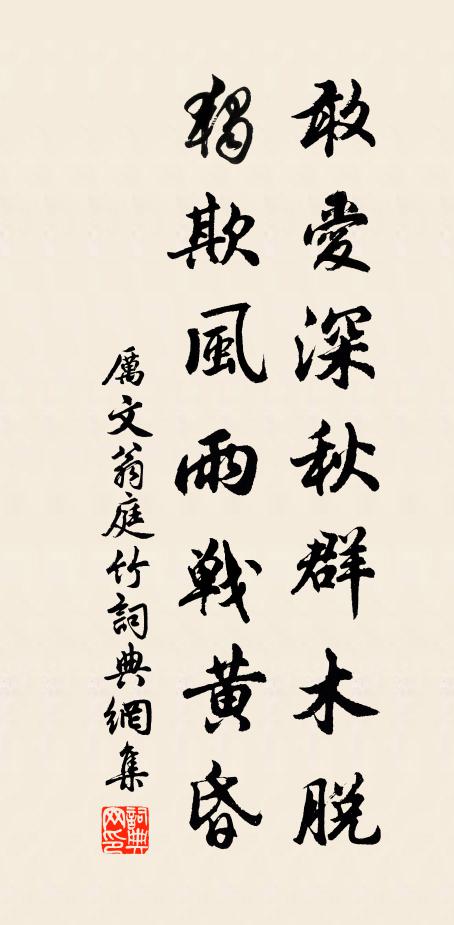 敢愛深秋群木脫
獨欺風雨戰黃昏
厲文翁庭竹詞典網集
詞典網印